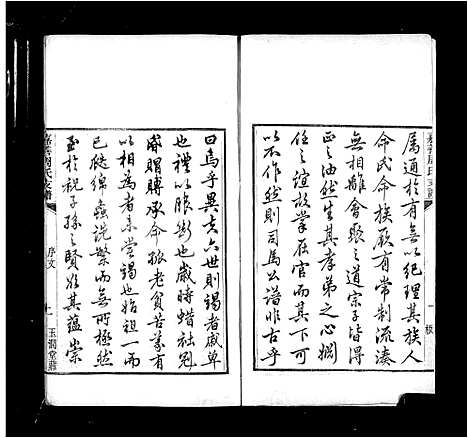 属通於有無以纪理其族人
命氏命族厥有常制流湊
無相雖會聚之道宗子皆得
之油然生其孝弟之心嫺
任之誼故掌在官而
以不作然則司馬公譜非古乎
曰烏乎異矣六世則竭者戚單
也禮以賑也歲時蜡社冠
賵賻承命振老貧苦義有
以相為者未嘗竭也始祖一而
已瓞綿螽詵繁而無所極然
至於祝子孫之賢如其蘊崇
周氏支譜
序文
七
玉潤堂莊